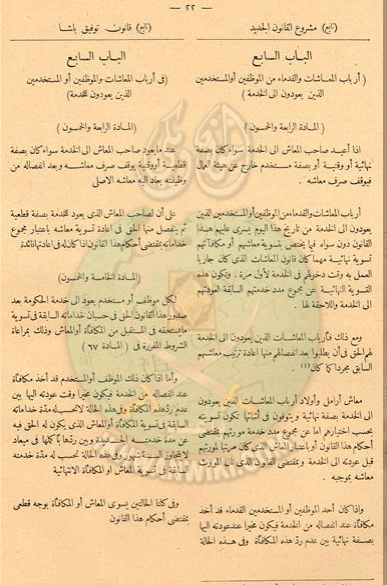 — ٢٢ —
(تابع) مشروع القانون الجديد
الباب السابع
( أرباب المعاشات والقدماء من الموظفين أو المستخدمين
الذين يعودون الى الخدمة )
( المادة الرابعة والخمسون )
اذا أعيد صاحب المعاش الى الخدمة سواء كان بصفة
نهائية أو وقتية أو بصفة مستخدم خارج عن هيئة العمال
فيوقف صرف معاشه .
أرباب المعاشات والقدماء من الموظفين أو المستخدمين الذين
يعودون الى الخدمة من تاريخ هذا اليوم يسرى عليهم هذا
القانون دون سواه فيما يختص بتسوية معاشهم أو مكافآتهم
تسوية نهائية مهما كان قانون المعاشات الذى كان جاريا
العمل به وقت دخولهم فى الخدمة لأول مرة . وتكون هذه
التسوية النهائية عن مجموع مدد خدمتهم السابقة لعودتهم
الى الخدمة واللاحقة لها .
ومع ذلك فأرباب المعاشات الذين يعودون الى الخدمة
لهم الحق فى أن يطلبوا بعد انفصالهم منها اعادة ترتيب معاشهم
السابق مجردا كما كان (١)
معاش أرامل وأولاد أرباب المعاشات الذين يعودون
الى الخدمة بصفة نهائية و يتوفون فى أثنائها تكون تسويته
بحسب اختيارهم اما عن مجموع مدد خدمة مورثهم بمقتضى
أحكام هذا القانون أو باعتبار المعاش الذى كان مرتبا لمورثهم
قبل عودته الى الخدمة و بمقتضى القانون الذى نال المورث
معاشه بموجبه .
واذا كان أحد الموظفين أو المستخدمين القدماء قد أخذ
مكافأة عند انفصاله من الخدمة فيكون مخيرا عند عودته اليها
بصفة نهائية بين عدم رد هذه المكافأة وفى هذه الحالة
(تابع) قانون توفيق باشا
الباب السابع
( فى أرباب المعاشات والموظفين أو المستخدمين
الذين يعودون للخدمة )
( المادة الرابعة والخمسون )
عند ما يعود صاحب المعاش الى الخدمة سواء كان بصفة
قطعية أو وقتية يوقف صرف معاشه و بعد انفصاله من
وظيفته يعاد اليه معاشه الاصلى
على أن لصاحب المعاش الذى يعود للخدمة بصفة قطعية
ثم ينفصل منها الحق فى اعادة تسوية معاشه باعتبار مجموع
خداماته بمقتضى أحكام هذا القانون اذا كان له فى اعادتها فائدة
( المادة الخامسة والخمسون )
لكل موظف أو مستخدم يعود الى خدمة الحكومة بعد
صدور هذا القانون الحق فى حسبان خداماته السابقة فى تسوية
ما يستحقه فى المستقبل من المكافأة أو المعاش وذلك بمراعاة
الشروط المقررة فى ( المادة ٦٧ )
وأما اذا كان ذلك الموظف أو المستخدم قد أخذ مكافأة
عند انفصاله من الخدمة فيكون مخيرا وقت عودته اليها بين
عدم رد هذه المكافأة وفى هذه الحالة لا تحسب له مدة خداماته
السابقة فى تسوية المكافأة أو المعاش الذى يكون له الحق فيه
عن مدة خدمته الجديدة و بين ردها بأكملها فى ميعاد
السنة وفى هذه الحالة تحسب له مدة خدمته
سابقة فى تسوية المعاش أو المكافأة الانتهائية
وفى كلتا الحالتين يسوى المعاش أو المكافأة بوجه قطعى
بمقتضى أحكام هذا القانون